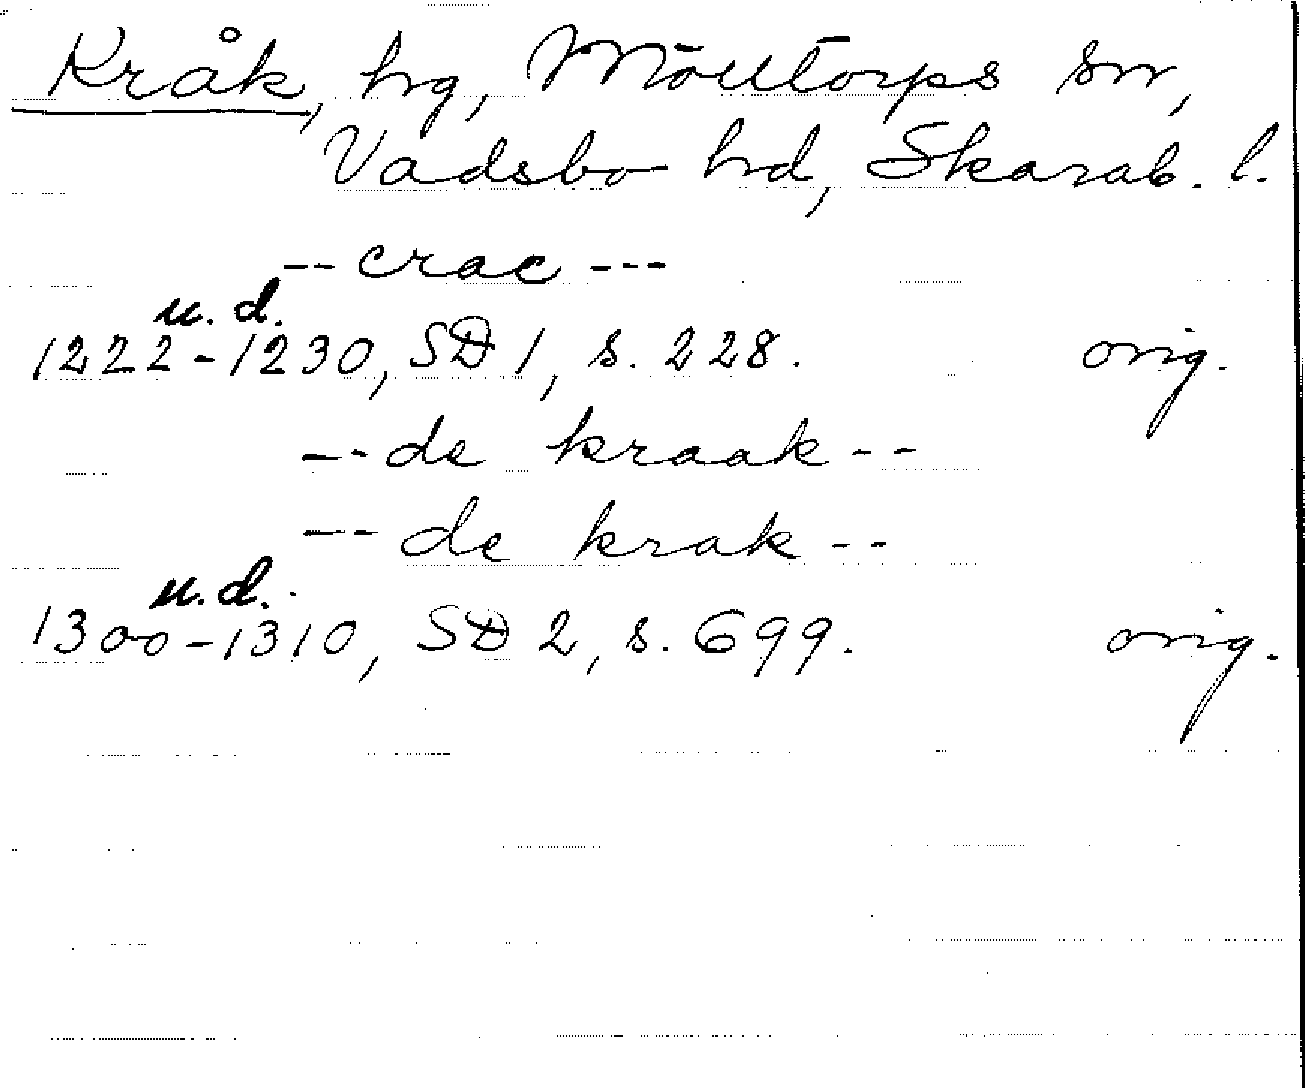 Kråk, hg, Möltorps sn,
Vadsbo hd, Skarab. l.
-- crac ---
u. d.
1222-1230, SD 1, s. 228. orig.
-- de kraak --
-- de krak --
u. d.
1300-1310, SD 2, s. 699. orig.